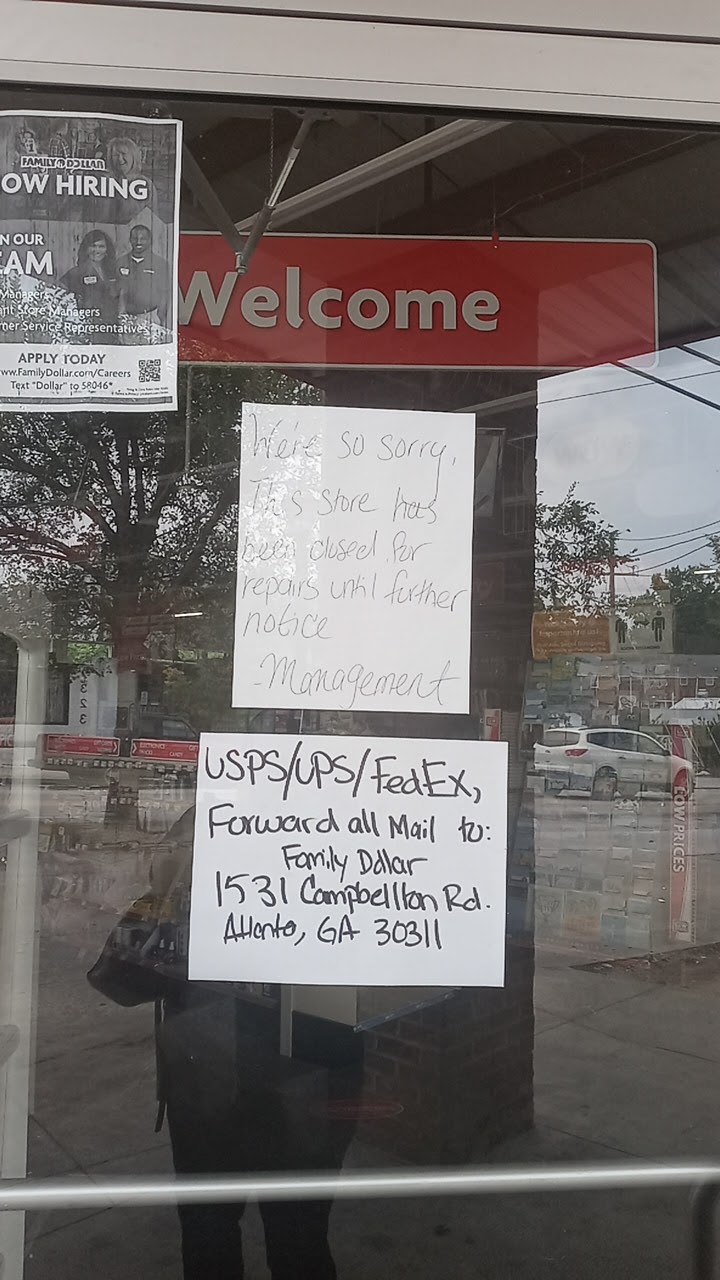 FAMILY DOLLAR
OW HIRING
N OUR
EAM
Managers
nt Store Managers
mer Service Representatives
APPLY TODAY
ww.FamilyDollar.com/Careers
Text "Dollar" to 58046*
Welcome
We're so sorry,
This store has
been closed for
repairs until further
notice
-Management
USPS/UPS/FedEx,
Forward all Mail to:
Family Dollar
1531 Campbellton Rd.
Atlanta, GA 30311
323
LOW PRICES